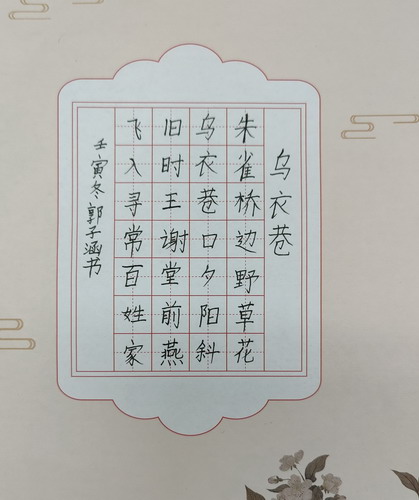 乌衣巷
朱雀桥边野草花
乌衣巷口夕阳斜
旧时王谢堂前燕
飞入寻常百姓家
壬寅冬郭子涵书